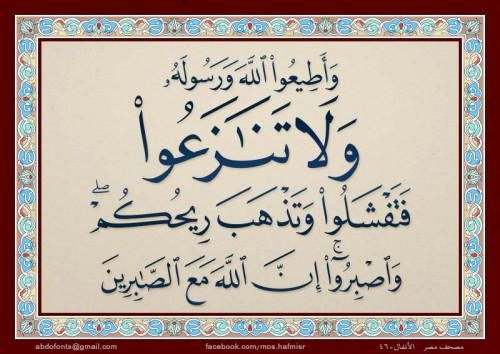 وَأَطِيعُوا۟ ٱللَّهَ وَرَسُولَهُۥ
وَلَا تَنَـٰزَعُوا۟
فَتَفْشَلُوا۟ وَتَذْهَبَ رِيحُكُمْ ۖ
وَٱصْبِرُوٓا۟ ۚ إِنَّ ٱللَّهَ مَعَ ٱلصَّـٰبِرِينَ
مصحف مصر الأنفال-٤٦
facebook.com/mos.hafmisr
abdofonts@gmail.com